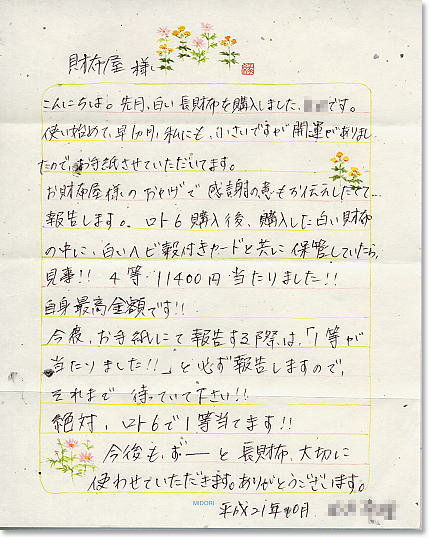 財布屋 様
こんにちは。先月、白い長財布を購入しました、です。
使い始めて、早1ヵ月、私にも、小さいですが開運がありまし
たので、お手紙させていただいてます。
お財布屋様のおかげで感謝の意もお伝えしたくて…
報告します。ロト6購入後、購入した白い財布
の中に、白いヘビ殻付きカードと共に保管していたら、
見事!! 4等・11400円当たりました!!
自身最高金額です!!
今度、お手紙にて報告する際は、「1等が
当たりました!!」と必ず報告しますので、
それまで待っていて下さい!!
絶対、ロト6で1等当てます!!
今後も、ずーっと長財布、大切に
使わせていただきます。ありがとうございます。
平成21年10月
MIDORI